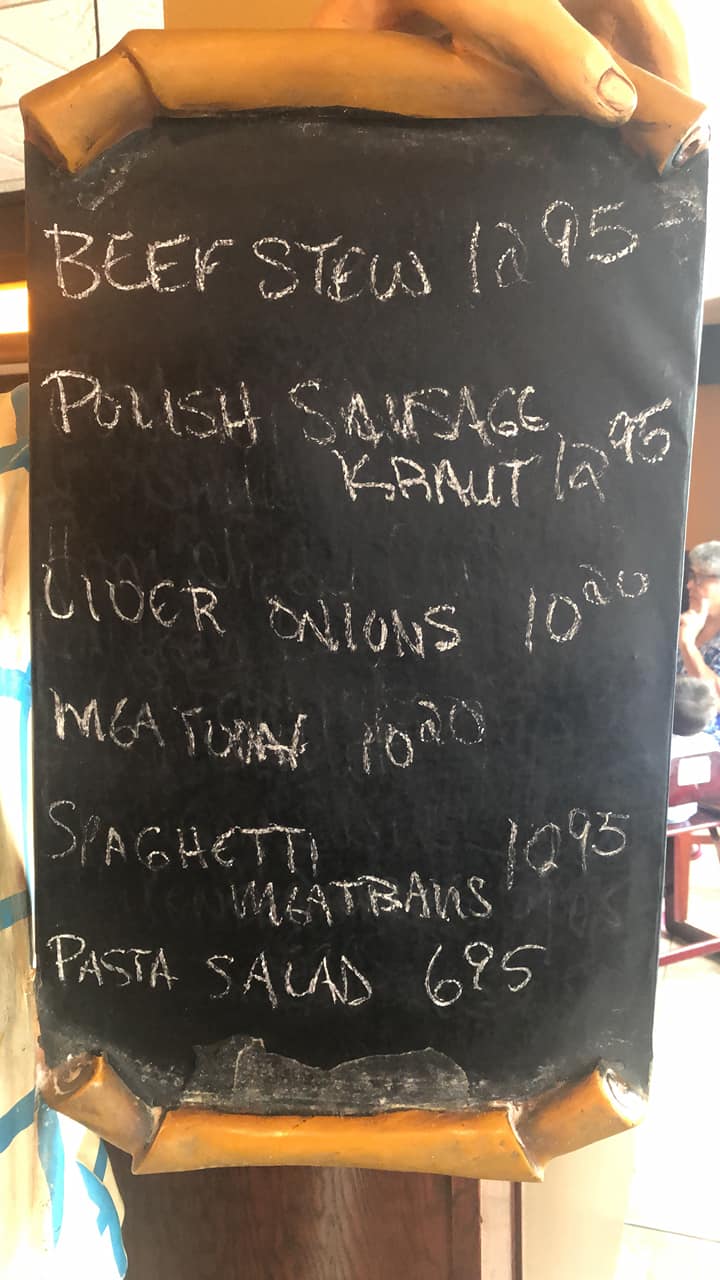 BEEF STEW 12 95
POLISH SAUSAGE
KRAUT 12 95
LIVER ONIONS 10 20
MEAT 10 20
SPAGHETTI 12 95
MEATBALLS
PASTA SALAD 6 95